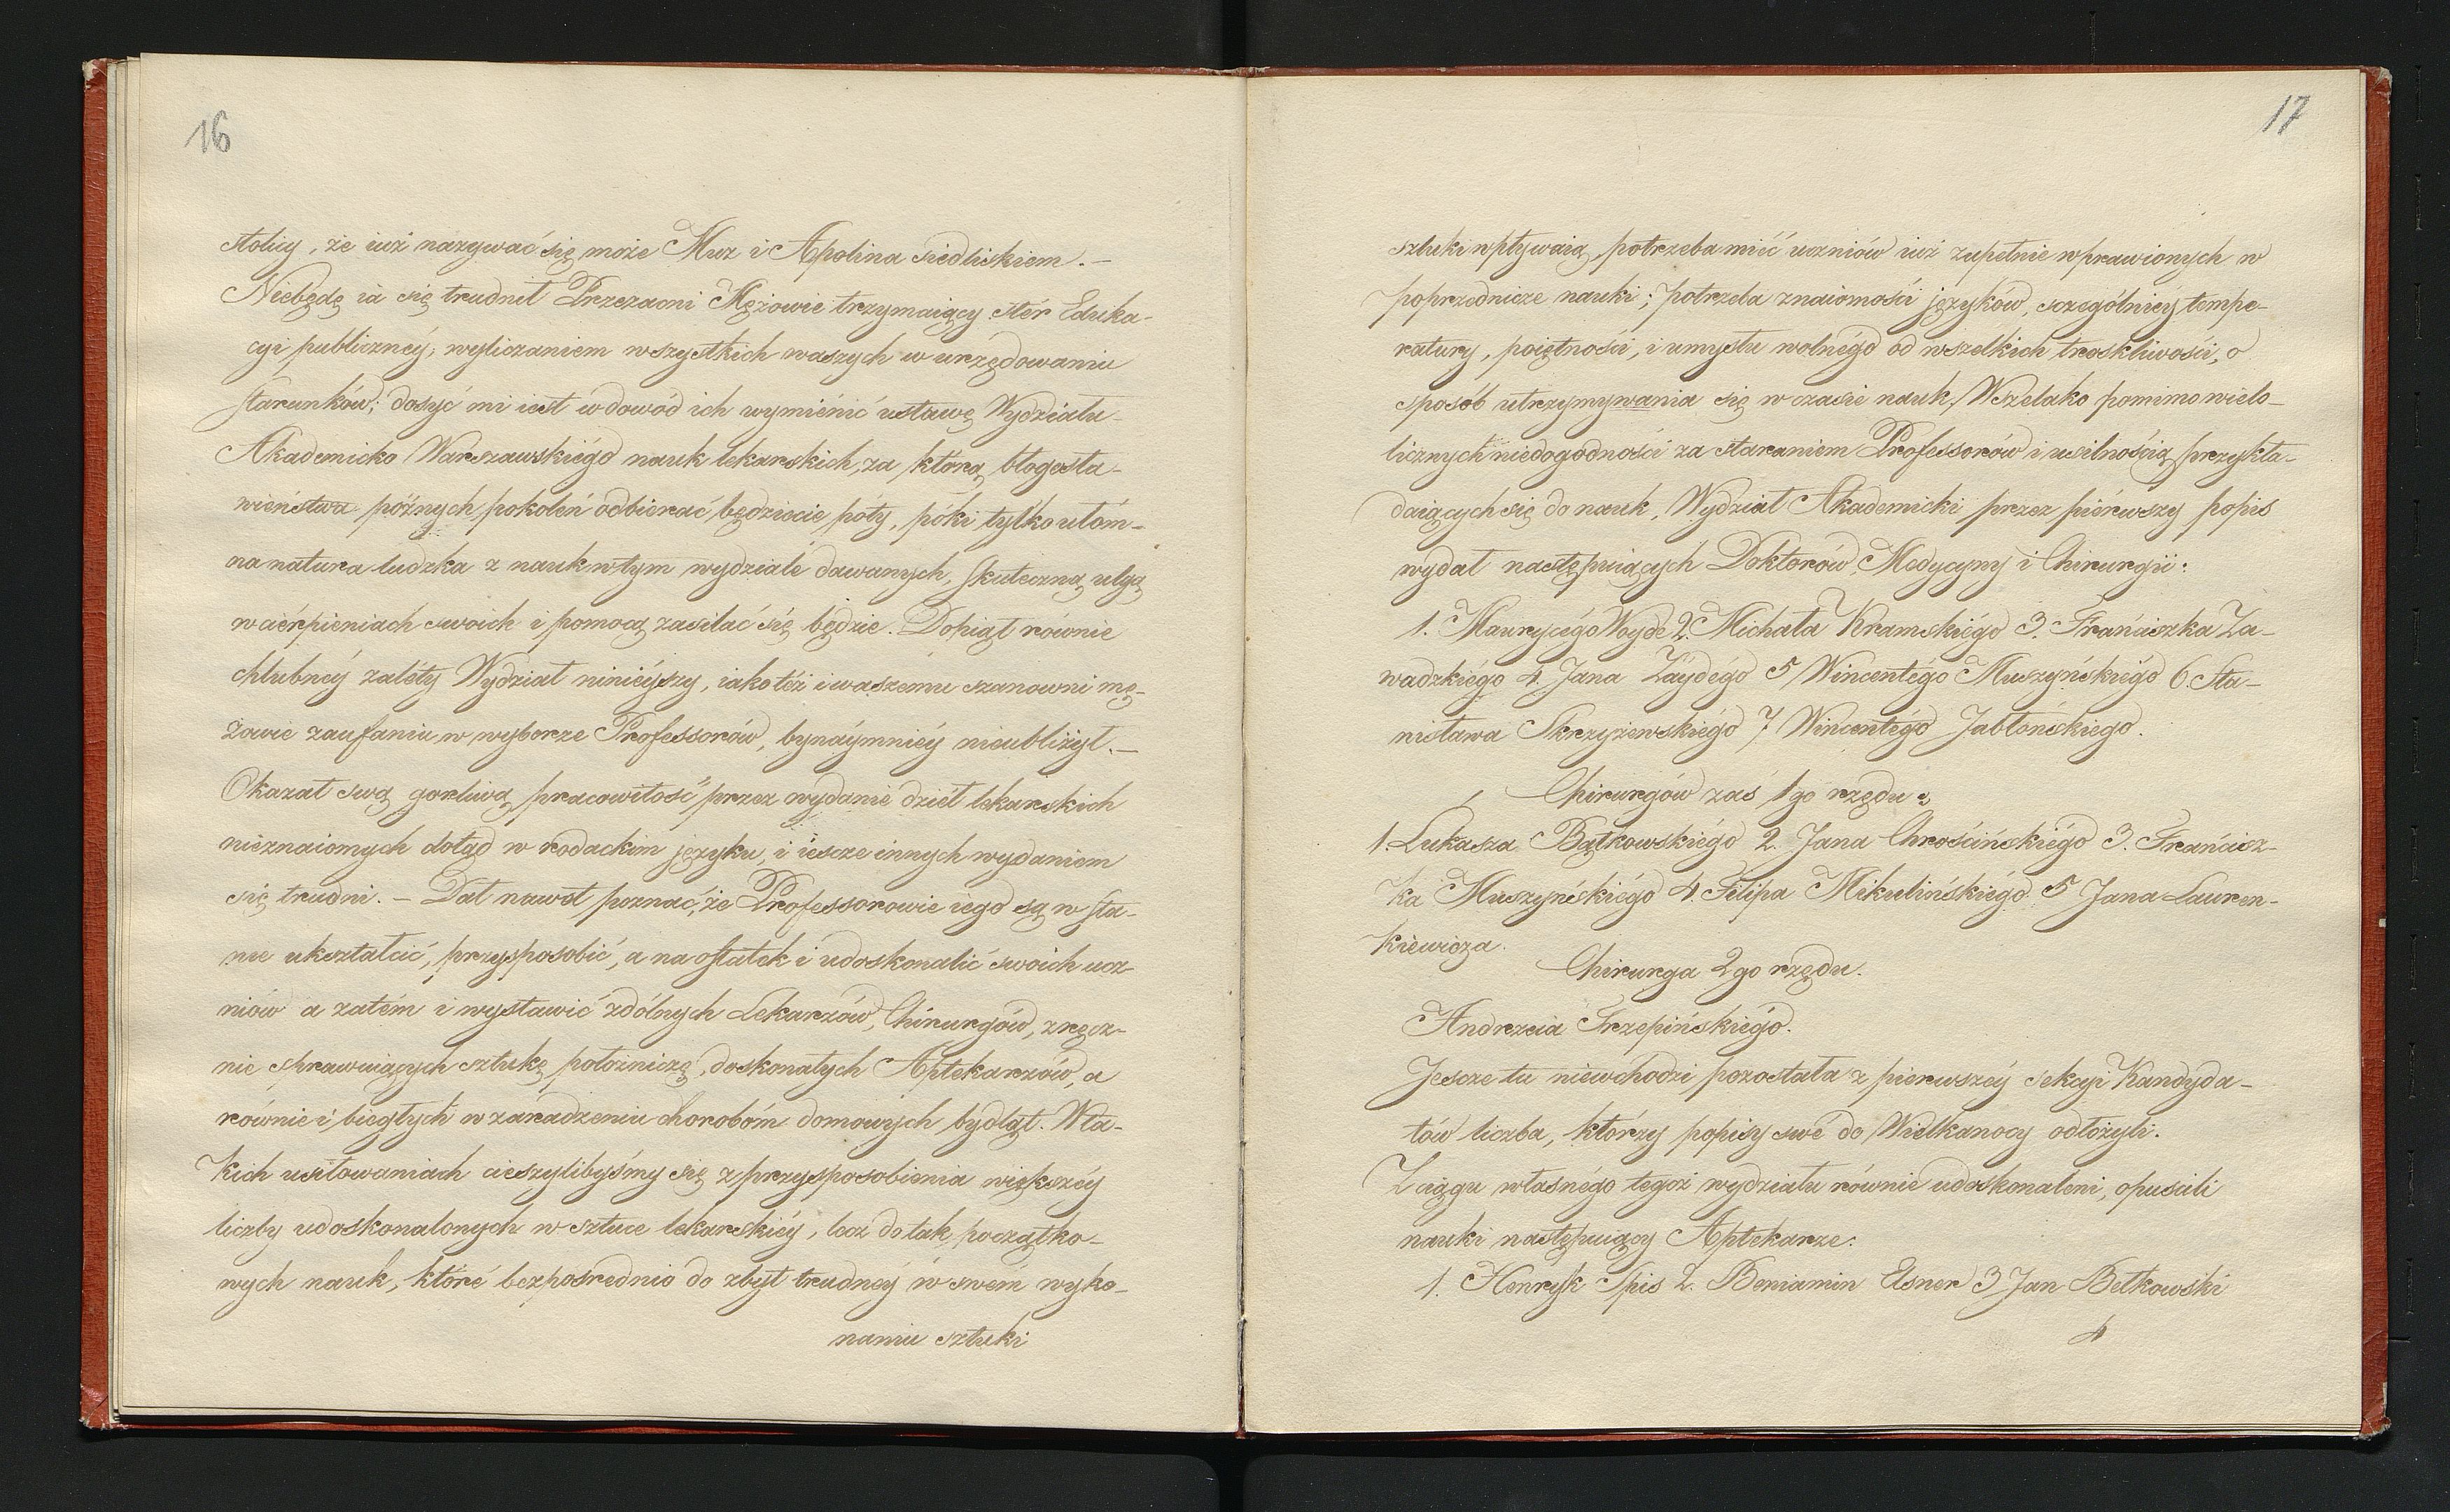 16
stolicy, że iuż nazywać się może Muz i Apolina siedliskiem. –
Niebędę ia się trudnił Przezacni Mężowie trzymaiący stér Eduka-
cyi publicznéy, wyliczaniem wszystkich waszych w urzędowaniu
starunków; dosyć mi iest w dowód ich wymiénić ustawę Wydziału
Akademicko Warszawskiégo nauk lekarskich, za którą błogosła-
wieństwa późnych pokoleń odbierać będziecie póty, póki tylko ułom-
na natura ludzka z nauk w tym wydziale dawanych, skuteczną ulgą
w ciérpieniach swoich i pomocą zasilać się będzie. Dopiął równie
chlubnéy zaléty Wydział ninieyszy, iako też i waszemu szanowni mę-
żowie zaufaniu w wyborze Professorów, bynaymniéy nieubliżył. –
Okazał swą gorliwą pracowitość przez wydanie dzieł lekarskich
nieznaiomych dotąd w rodackim języku, i iescze innych wydaniem
się trudni. – Dał nawet poznać, że Professorowie iego są w sta-
nie ukształcić, przysposobić, a na ostatek i udoskonalić swoich ucz
niów a zatém i wystawić zdólnych Lekarzów, Chirurgów, zręcz-
nie sprawuiących sztukę położniczą, doskonałych Aptekarzów, a
równie i biegłych w zaradzeniu chorobóm domowych bydląt. W ta-
kich usiłowaniach cieszylibyśmy się z przysposobienia większéy
liczby udoskonalonych w sztuce lekarskiéy, lecz do tak początko-
wych nauk, któré bezpośrednio do zbyt trudnéy w swém wyko-
naniu sztuki
17
sztuki wpływaią, potrzeba mieć uczniów iuż zupełnie wprawionych w
poprzednicze nauki; potrzeba znaiomości języków, szczególniéy tempe-
ratury, poiętności, i umysłu wolnégo od wszelkich troskliwości, o
sposób utrzymywania się w czasie nauk, Wszelako pomimo wielo-
licznych niedogodności za staraniem Professorów i usilnością przykła-
daiących się do nauk, Wydział Akademicki przez piérwszy popis
wydał następuiących Doktorów Medycyny i Chirurgii:
1. Maurycégo Woyde 2. Michała Kramskiégo 3. Franciszka Za-
wadzkiégo 4. Jana Zaydégo 5 Wincentégo Muszyńskiégo 6. Sta-
nisława Skrzyżewskiégo 7 Wincentégo Jabłońskiego.
Chirurgów zaś 1go rzędu:
1. Łukasza Bątkowskiégo 2. Jana Chrościńskiégo 3. Francisz-
ka Muszyńskiégo 4. Filipa Mikulińskiégo 5 Jana Lauren-
kiewicza.
Chirurga 2go rzędu.
Andrzeia Trzepińskiégo.
Jescze tu niewchodzi pozostała z pierwszéy sekcyi Kandyda-
tów liczba, którzy popisy swé do Wielkanocy odłożyli.
Z ciągu własnégo tegoż wydziału równie udoskonaleni, opuścili
nauki następuiący Aptekarze:
1. Henryk Spis 2. Beniamin Elsner 3 Jan Betkowski
4